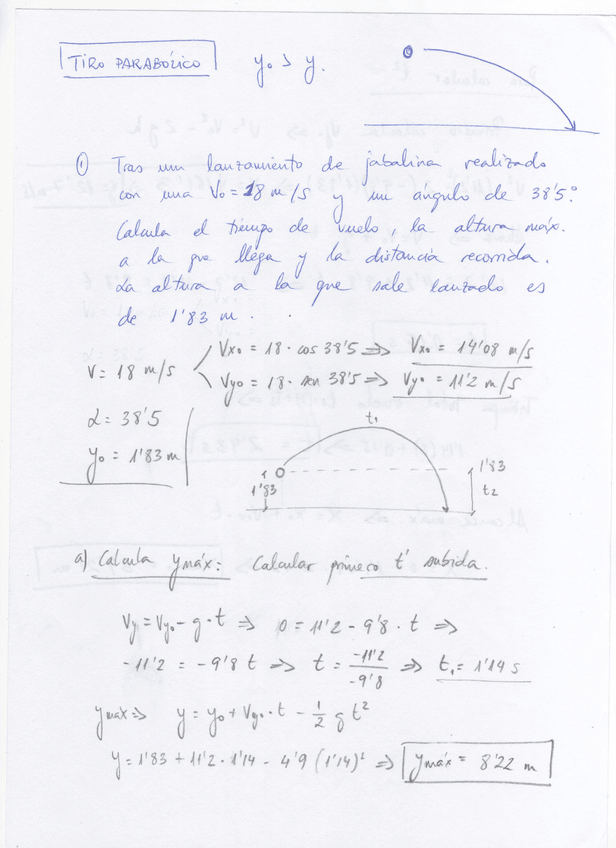 TIRO PARABÓLICO y₀ > y.
① Tras un lanzamiento de jabalina realizado
con una V₀ = 18 m/s y un ángulo de 38'5°
Calcula el tiempo de vuelo, la altura máx.
a la que llega y la distancia recorrida.
La altura a la que sale lanzado es
de 1'83 m.
V = 18 m/s
Vx₀ = 18 · cos 38'5 => Vx₀ = 14'08 m/s
Vy₀ = 18 · sen 38'5 => Vy₀ = 11'2 m/s
α = 38'5
y₀ = 1'83 m
t₁
1'83
1'83
t₂
a) Calcula ymáx: Calcular primero t' subida.
Vy = Vy₀ - g · t => 0 = 11'2 - 9'8 · t =>
-11'2 = -9'8 t => t = -11'2 / -9'8 => t₁ = 1'14 s
ymáx => y = y₀ + Vy₀ · t - 1/2 g t²
y = 1'83 + 11'2 · 1'14 - 4'9 (1'14)² => ymáx = 8'22 m